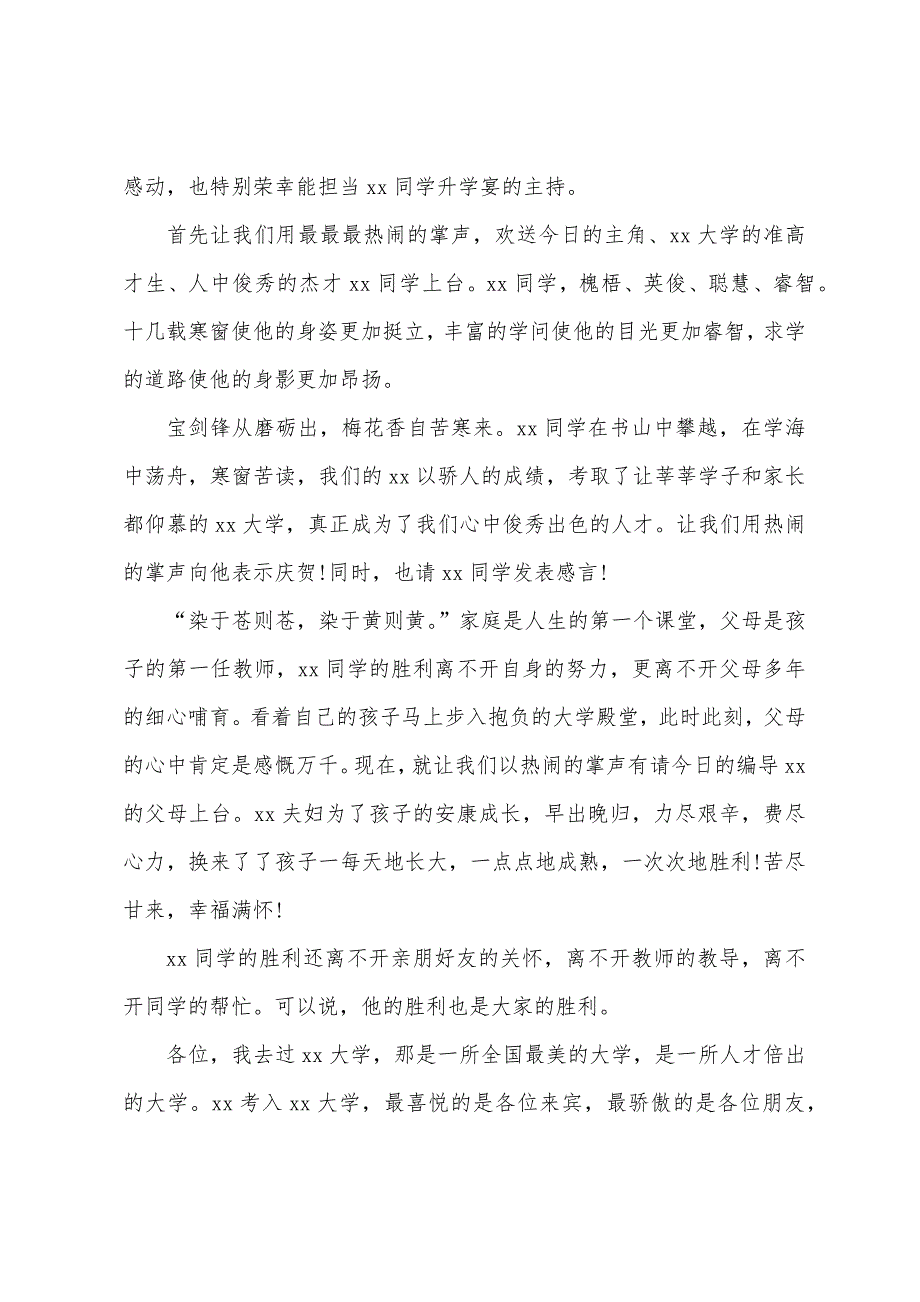 感动，也特别荣幸能担当 xx 同学升学宴的主持。
首先让我们用最最最热闹的掌声，欢送今日的主角、xx 大学的准高
才生、人中俊秀的杰才 xx 同学上台。xx 同学，槐梧、英俊、聪慧、睿智。
十几载寒窗使他的身姿更加挺立，丰富的学问使他的目光更加睿智，求学
的道路使他的身影更加昂扬。
宝剑锋从磨砺出，梅花香自苦寒来。xx 同学在书山中攀越，在学海
中荡舟，寒窗苦读，我们的 xx 以骄人的成绩，考取了让莘莘学子和家长
都仰慕的 xx 大学，真正成为了我们心中俊秀出色的人才。让我们用热闹
的掌声向他表示庆贺!同时，也请 xx 同学发表感言!
“染于苍则苍，染于黄则黄。”家庭是人生的第一个课堂，父母是孩
子的第一任教师，xx 同学的胜利离不开自身的努力，更离不开父母多年
的细心哺育。看着自己的孩子马上步入抱负的大学殿堂，此时此刻，父母
的心中肯定是感慨万千。现在，就让我们以热闹的掌声有请今日的编导 xx
的父母上台。xx 夫妇为了孩子的安康成长，早出晚归，力尽艰辛，费尽
心力，换来了了孩子一每天地长大，一点点地成熟，一次次地胜利!苦尽
甘来，幸福满怀!
xx 同学的胜利还离不开亲朋好友的关怀，离不开教师的教导，离不
开同学的帮忙。可以说，他的胜利也是大家的胜利。
各位，我去过 xx 大学，那是一所全国最美的大学，是一所人才倍出
的大学。xx 考入 xx 大学，最喜悦的是各位来宾，最骄傲的是各位朋友，